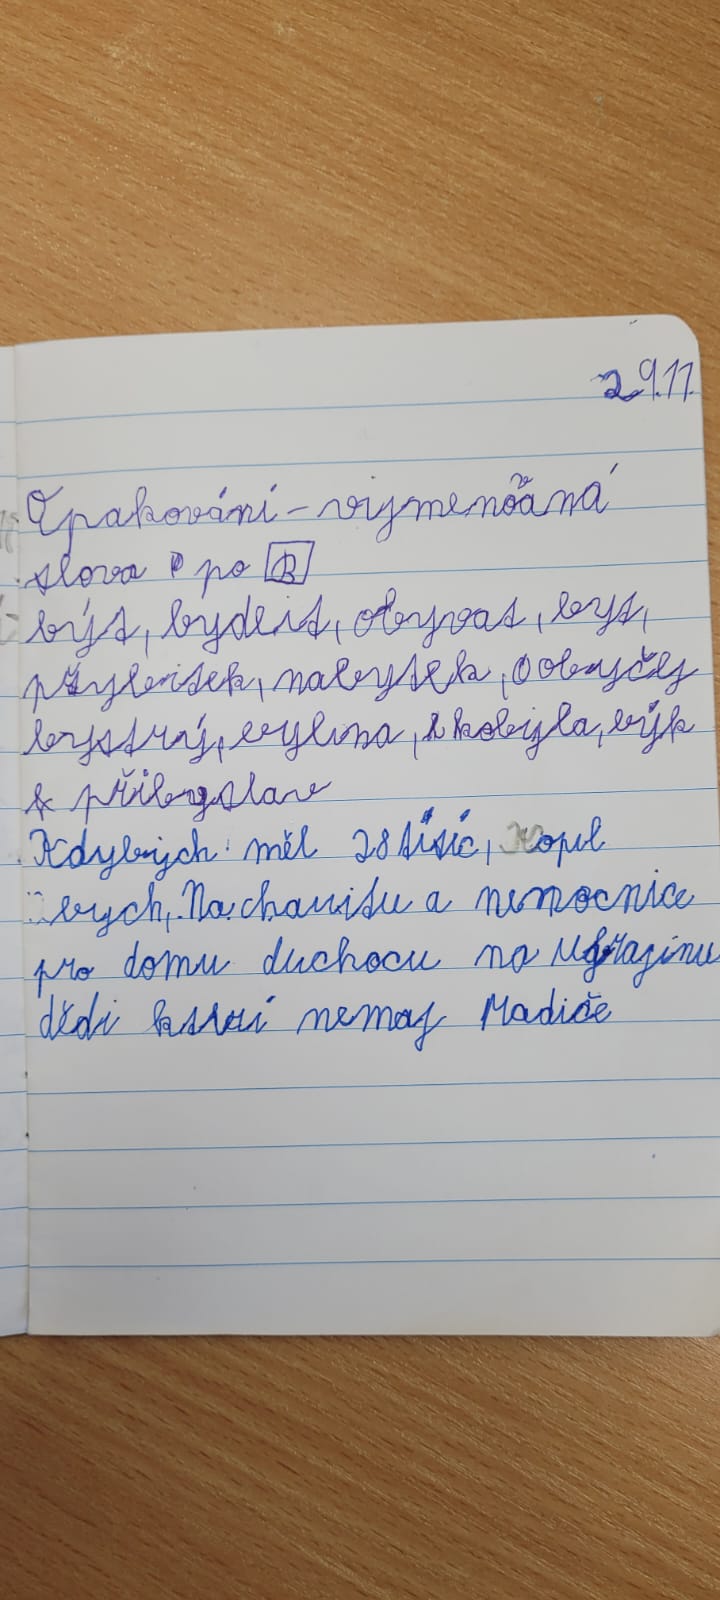 29.11.
Opakování - vyjmenőaná
slova po B
být, bydlit, obyvat, byt,
přybitek, nabytek, obyčej
bystrý, bylina, kobyla, býk
přibyslav
Kdybych měl 28 tisíc, kopl
bych, Na charitu a nemocnice
pro domu duchocu na Ukrajinu
dědi kteří nemaj Radiče